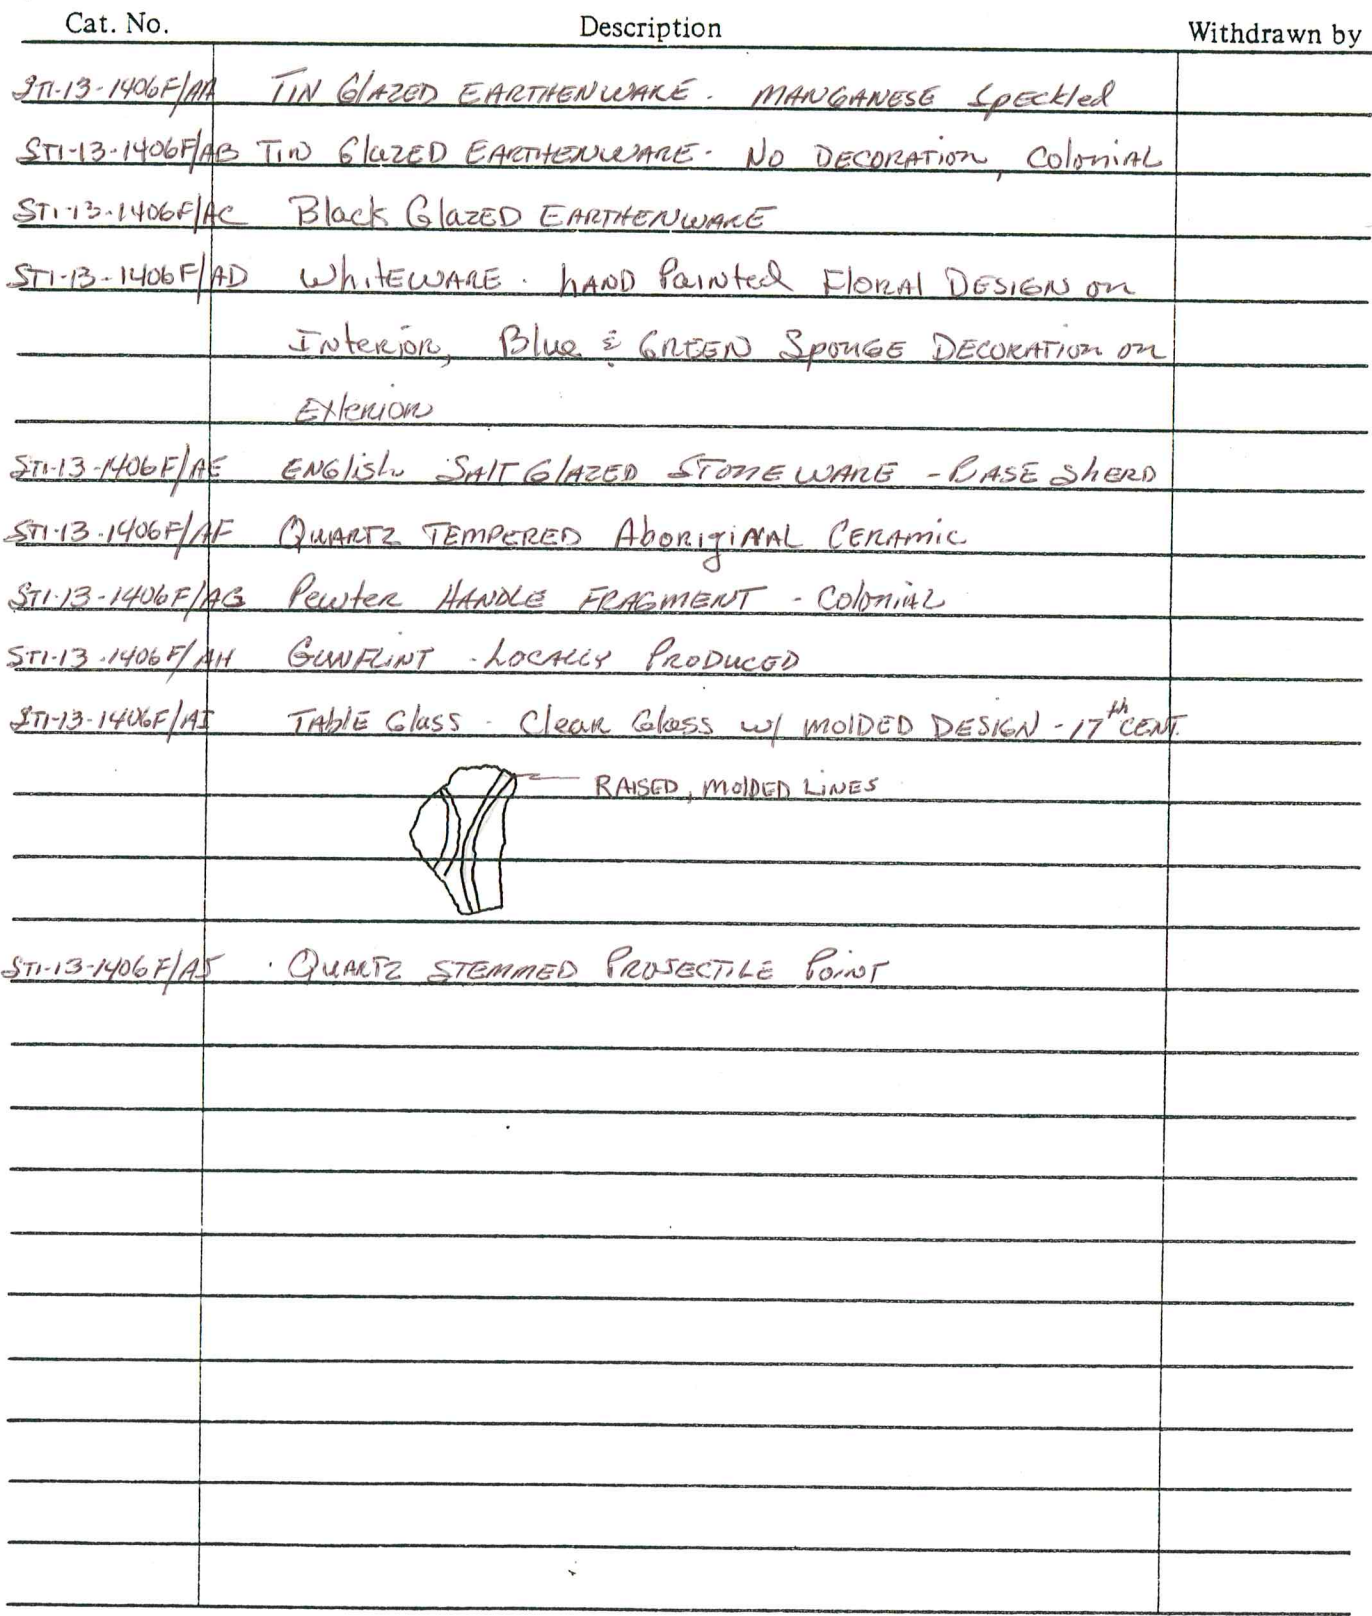 Cat. No. Description Withdrawn by
ST1-13-1406F/AA TIN GlAZED EARTHENWARE. MANGANESE Speckled
ST1-13-1406F/AB TIN GlaZED EARTHENWARE. No DECORATION, Colonial
ST1-13-1406F/AC Black GlaZED EARTHENWARE
ST1-13-1406F/AD WhiteWARE. hAND Painted FloRAl DESIGN on
Interior, Blue & GREEN SpONGE DECORATION on
Exterior
ST1-13-1406F/AE ENGlish SAlT GlAZED STONEWARE - BASE ShERD
ST1-13-1406F/AF QUARTZ TEMPERED AboriginAL CERAMIC
ST1-13-1406F/AG Pewter HANDLE FRAGMENT - Colonial
ST1-13-1406F/AH GUNFLINT - LOCALLY PRODUCED
ST1-13-1406F/AI TABlE Glass - Clear Glass w/ MOlDED DESIGN - 17th CENT.
RAISED, MOlDED LINES
ST1-13-1406F/AJ QUARTZ STEMMED PROJECTILE POINT